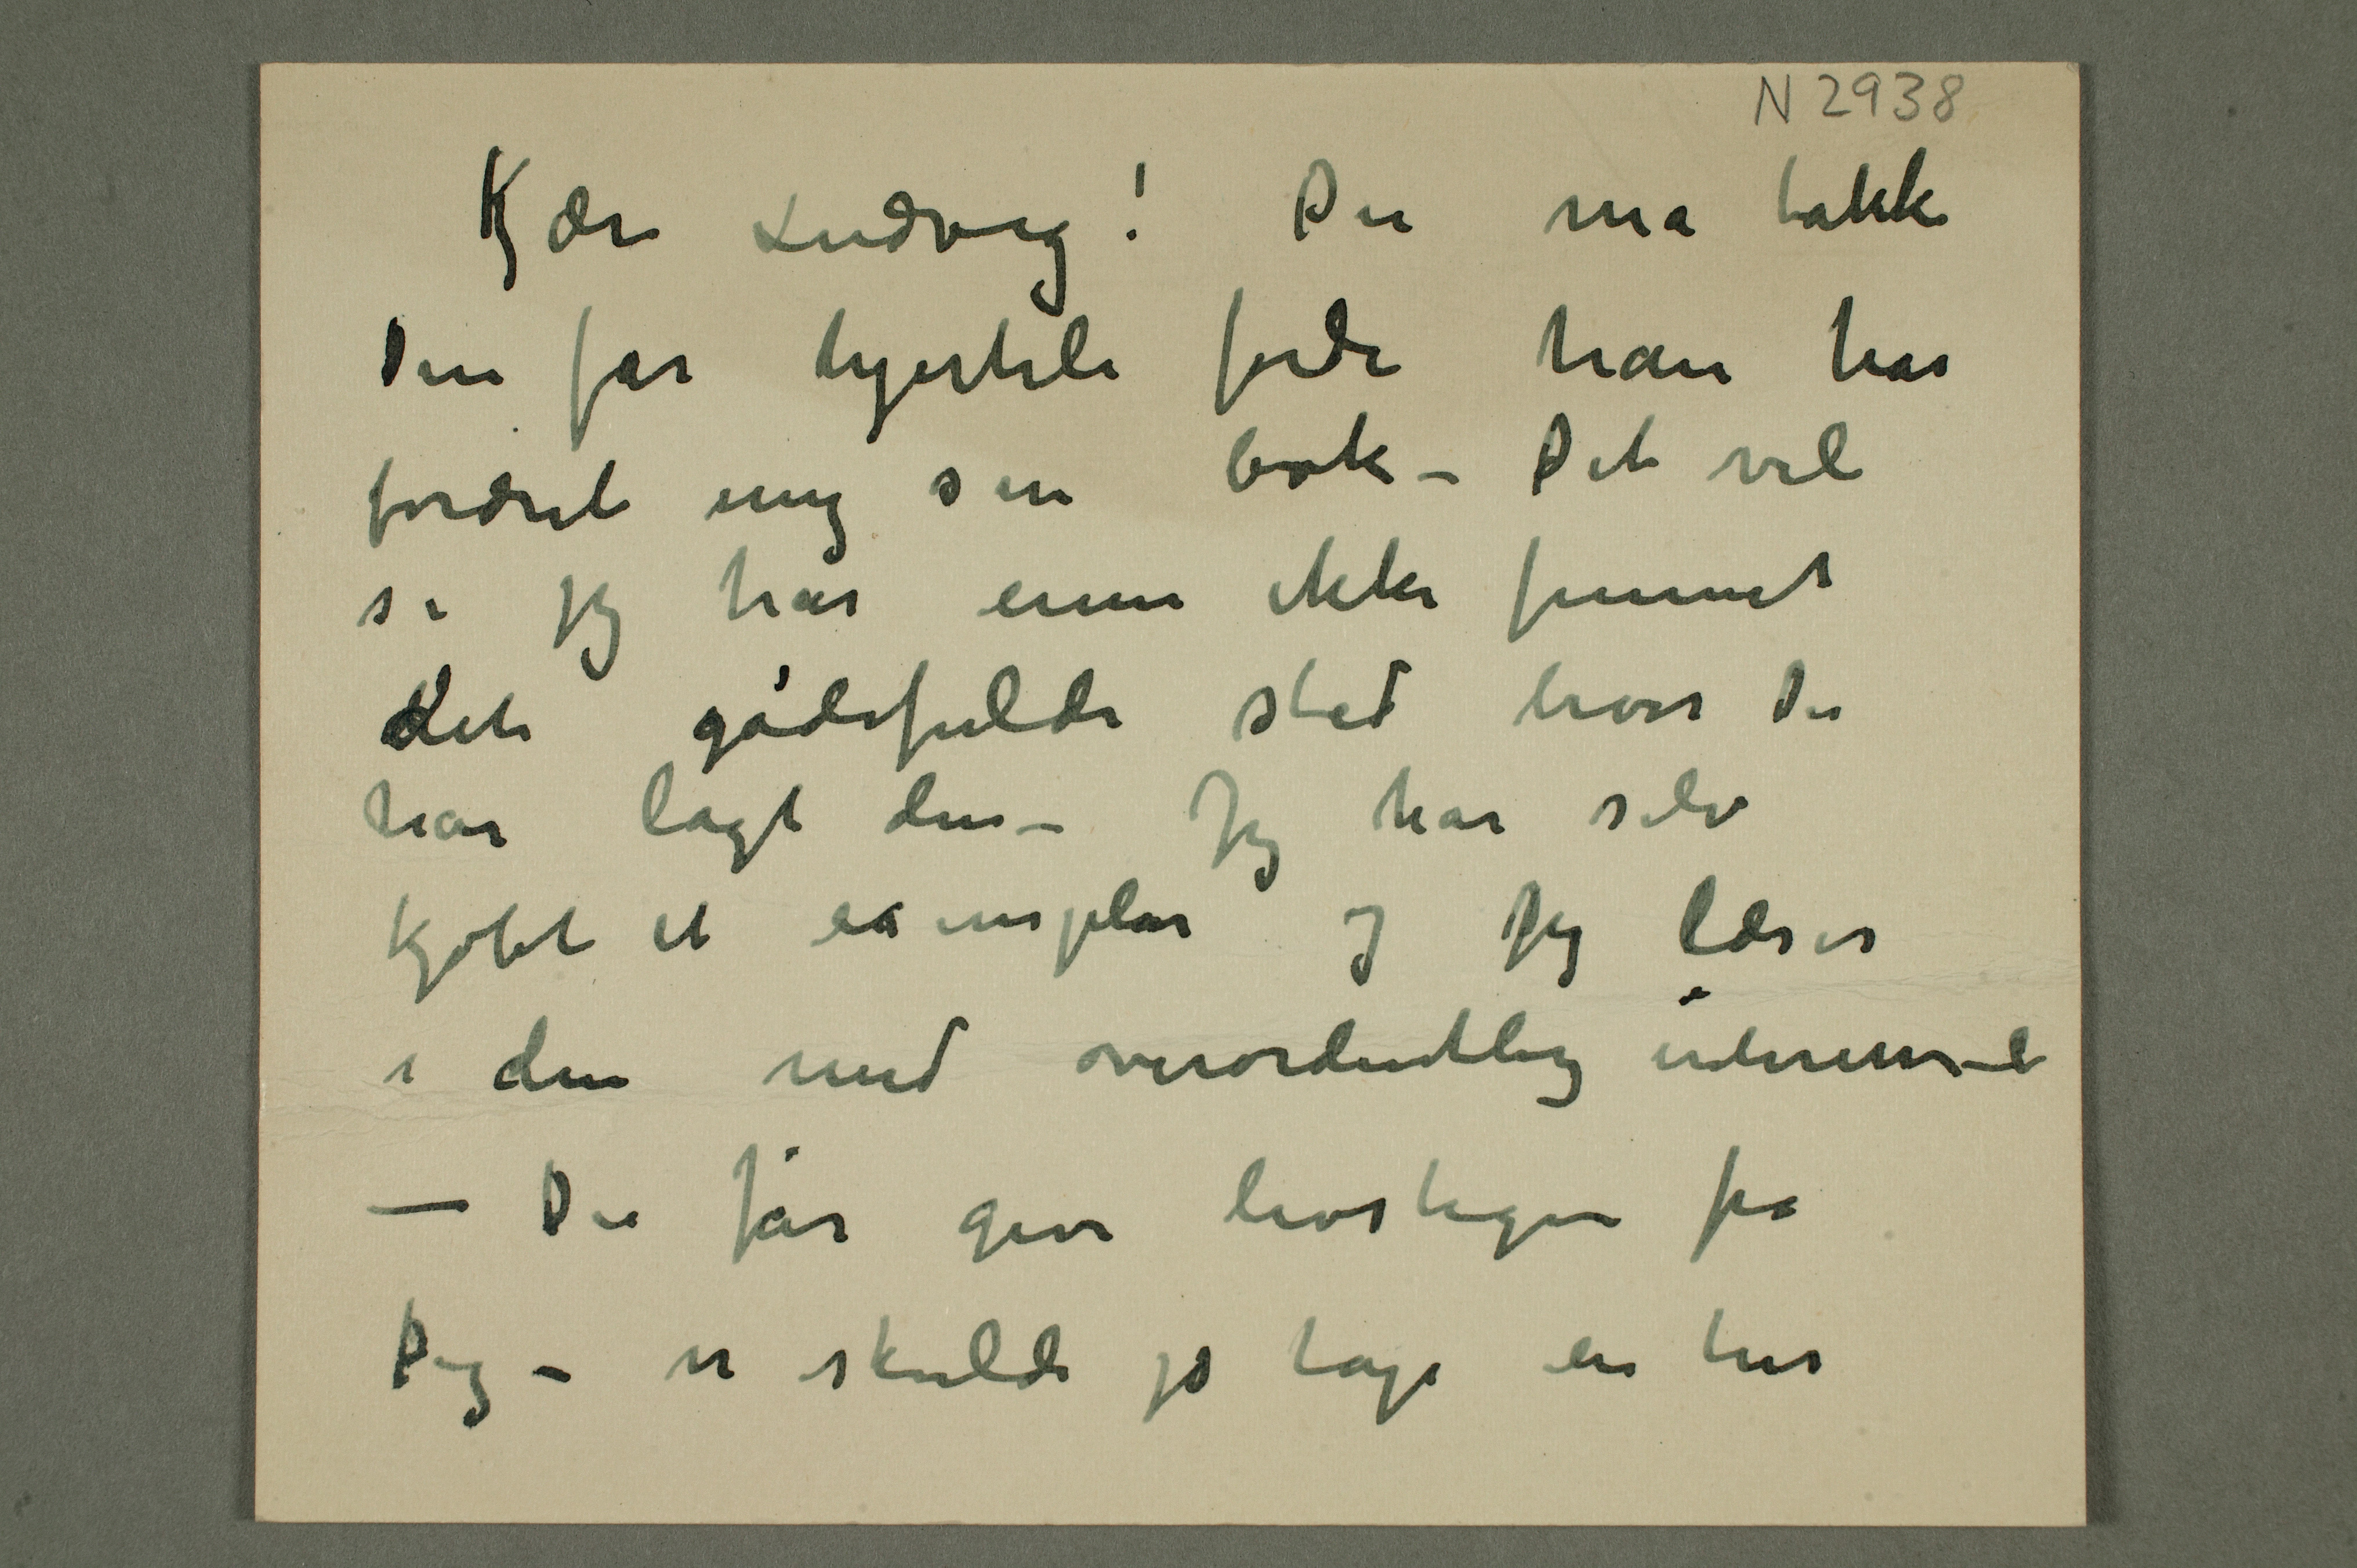 N 2938
Kjære Ludvig! Du må takke
Din far hjerteli fordi han har
foræret mig sin bok – Det vil
si jeg har ennu ikke funnet
det gådefulde sted hvor Du
har lagt den – Jeg har selv
kjøbt et exemplar og jeg læser
i den med overordentlig interesse
– Du får give livstegn fra
Dig – vi skulde jo tage en tur